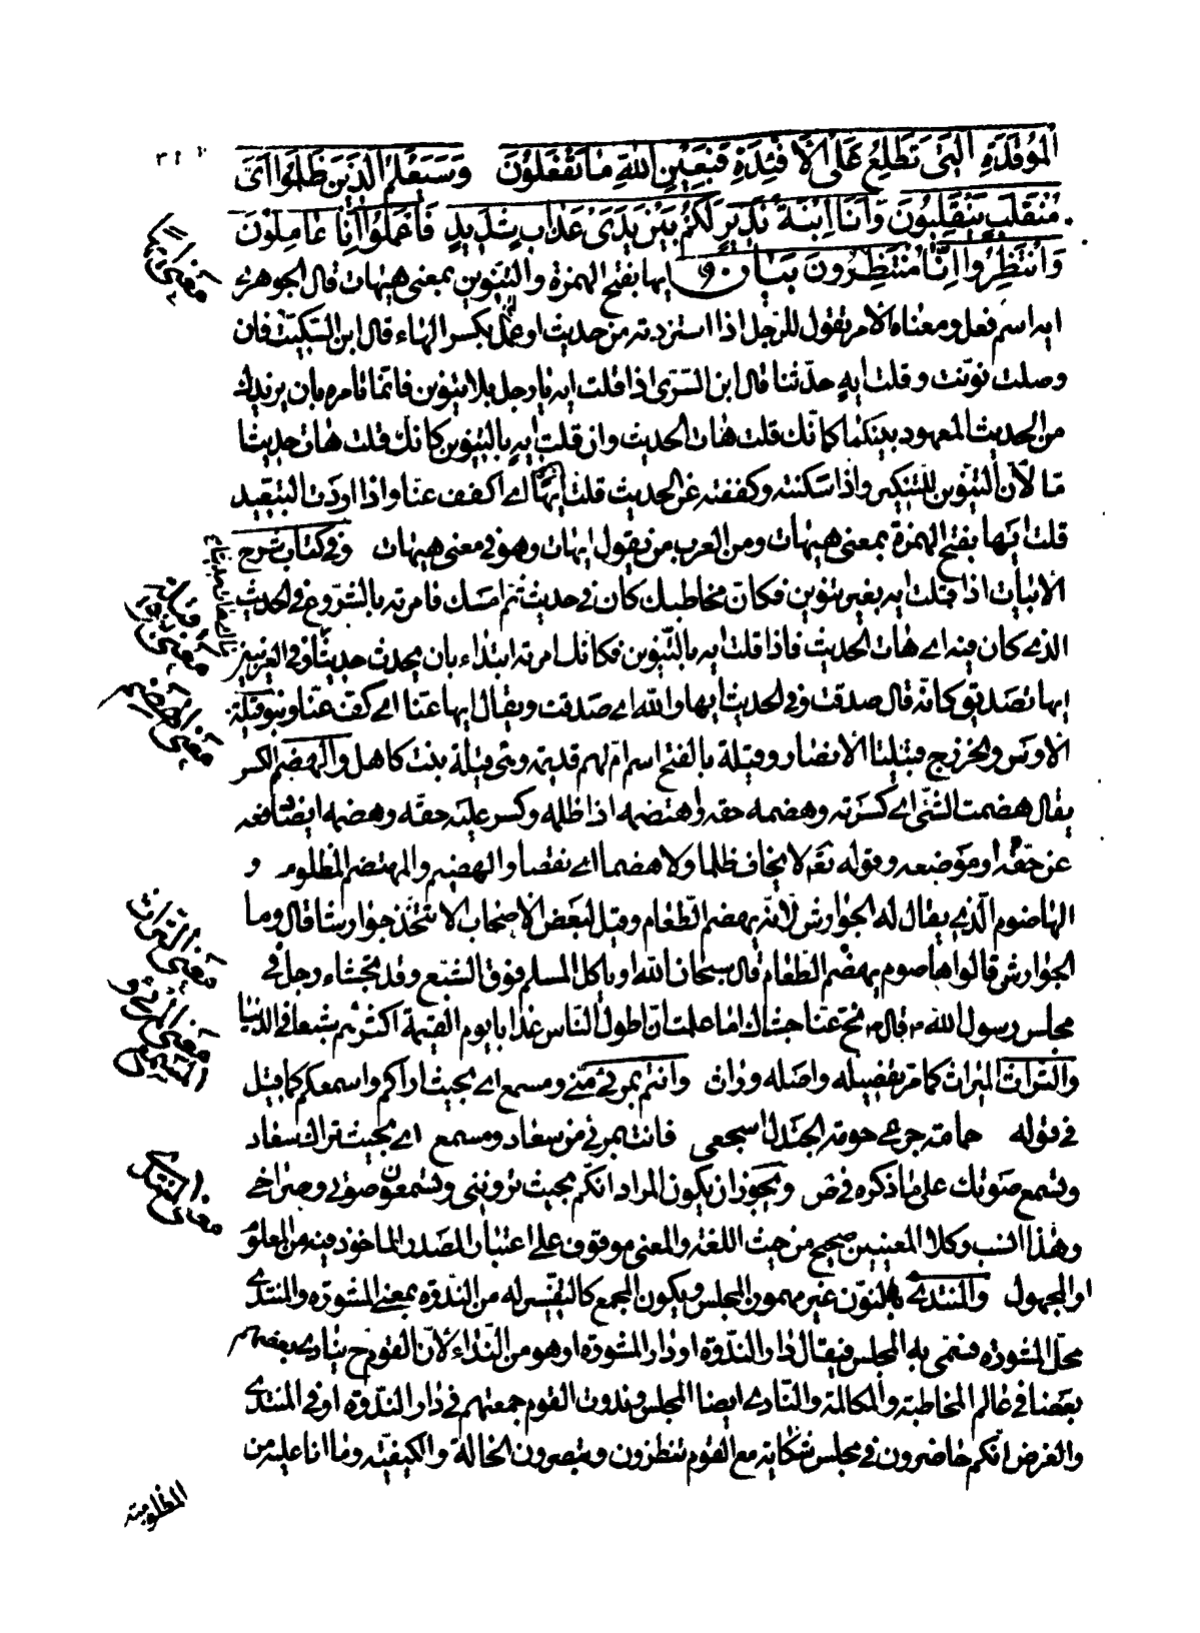 الموقدة التي تطلع على الأفئدة فبعين الله ما تفعلون وسيعلم الذين ظلموا اى
منقلب ينقلبون وانا ابنة نذير لكم بين يدى عذاب شديد فاعملوا انا عاملون
وانتظروا انا منتظرون بيان ايها بفتح الهمزة والتنوين بمعنى هيهات قال الجوهرى
ايه اسم فعل ومعناه الأمر تقول للرجل اذا استزدته من حديث او عمل بكسر الهاء قال ابن السكيت فان
وصلت نونت وقلت ايهٍ حدثنا قال ابن السرى اذا قلت ايه يا رجل بلا تنوين فانما تامره بان يزيدك
من الحديث المعهود بينكما كانك قلت هات الحديث وان قلت ايهٍ بالتنوين كانك قلت هات حديثا
ما لأن التنوين للتنكير واذا اسكنته وكففته عن الحديث قلت ايها اى اكفف عنا واذا اردت التبعيد
قلت ايها بفتح الهمزة بمعنى هيهات ومن العرب من يقول ايهات وهو فى معنى هيهات وفى كتاب شرح
الأبيات اذا قلت ايه بغير تنوين فكان مخاطبك كان فى حديث ثم امسك فامرته بالشروع فى الحديث
الذى كان فيه اى هات الحديث فاذا قلت ايه بالتنوين فكانك امرته ابتداء بان يحدث حديثا وفى الغريبين
ايها تصديق كانه قال صدقت وفى الحديث ايها والله اى صدقت ويقال ايها عنا اى كف عنا وبنو قيلة
الأوس والخزرج قبيلتا الأنصار وقيلة بالفتح اسم ام لهم قديمة وهى قيلة بنت كاهل والهضم الكسر
يقال هضمت الشئ اى كسرته وهضمه حقه واهتضمه اذا ظلمه وكسر عليه حقه وهضمه ايضا دفعه
عن حقه او موضعه وقوله تعالى لا يخاف ظلما ولا هضما اى نقصا والهضيم والمهتضم المظلوم و
الهاضوم الذى يقال له الجوارش لأنه يهضم الطعام وقيل لبعض الأصحاب الا نتخذ جوارشا قال وما
الجوارش قالوا هاضوم يهضم الطعام قال سبحان الله او ياكل المسلم فوق الشبع وقد تجشاء رجل فى
مجلس رسول الله ص قال ص نح عنا جشاك اما علمت ان اطول الناس عذابا يوم القيمة اكثرهم شبعا فى الدنيا
والتراث الميراث كما مر تفضيله واصله وراث وانتم بمرئى منى ومسمع اى بحيث اراكم واسمعكم كما قيل
فى قوله حمامة جرعى حومة الجندل اسجعى فانت بمرئى من سعاد ومسمع اى بحيث تراك سعاد
وتسمع صوتك على ما ذكره فى ض ويجوز ان يكون المراد انكم بحيث ترونينى وتسمعون صوتى وصراخى
وهذا انسب وكلا المعنيين صحيح من حيث اللغة والمعنى موقوف على اعتبار المصدر الماخوذ فيه من المعلوم
او المجهول والمنتدى بالنون غير مهموز المجلس ويكون المجمع كالتفسير له من الندوة بمعنى المشورة والمنتدى
محل المشورة فسمى به المجلس فيقال دار الندوة او دار المشورة او هو من النداء لأن القوم ح ينادى بعضهم
بعضا فى عالم المخاطبة والمكالمة والنادى ايضا المجلس وندوت القوم جمعتهم فى دار الندوة او فى المنتدى
والغرض انكم حاضرون فى مجلس شكايتى مع القوم تنظرون وتبصرون الحالة والكيفية وما انا عليه من
المظلومية
معنى قيلة
معنى الهضم
معنى التراث
معنى المرئى و
المسمع
معانى المنتدى